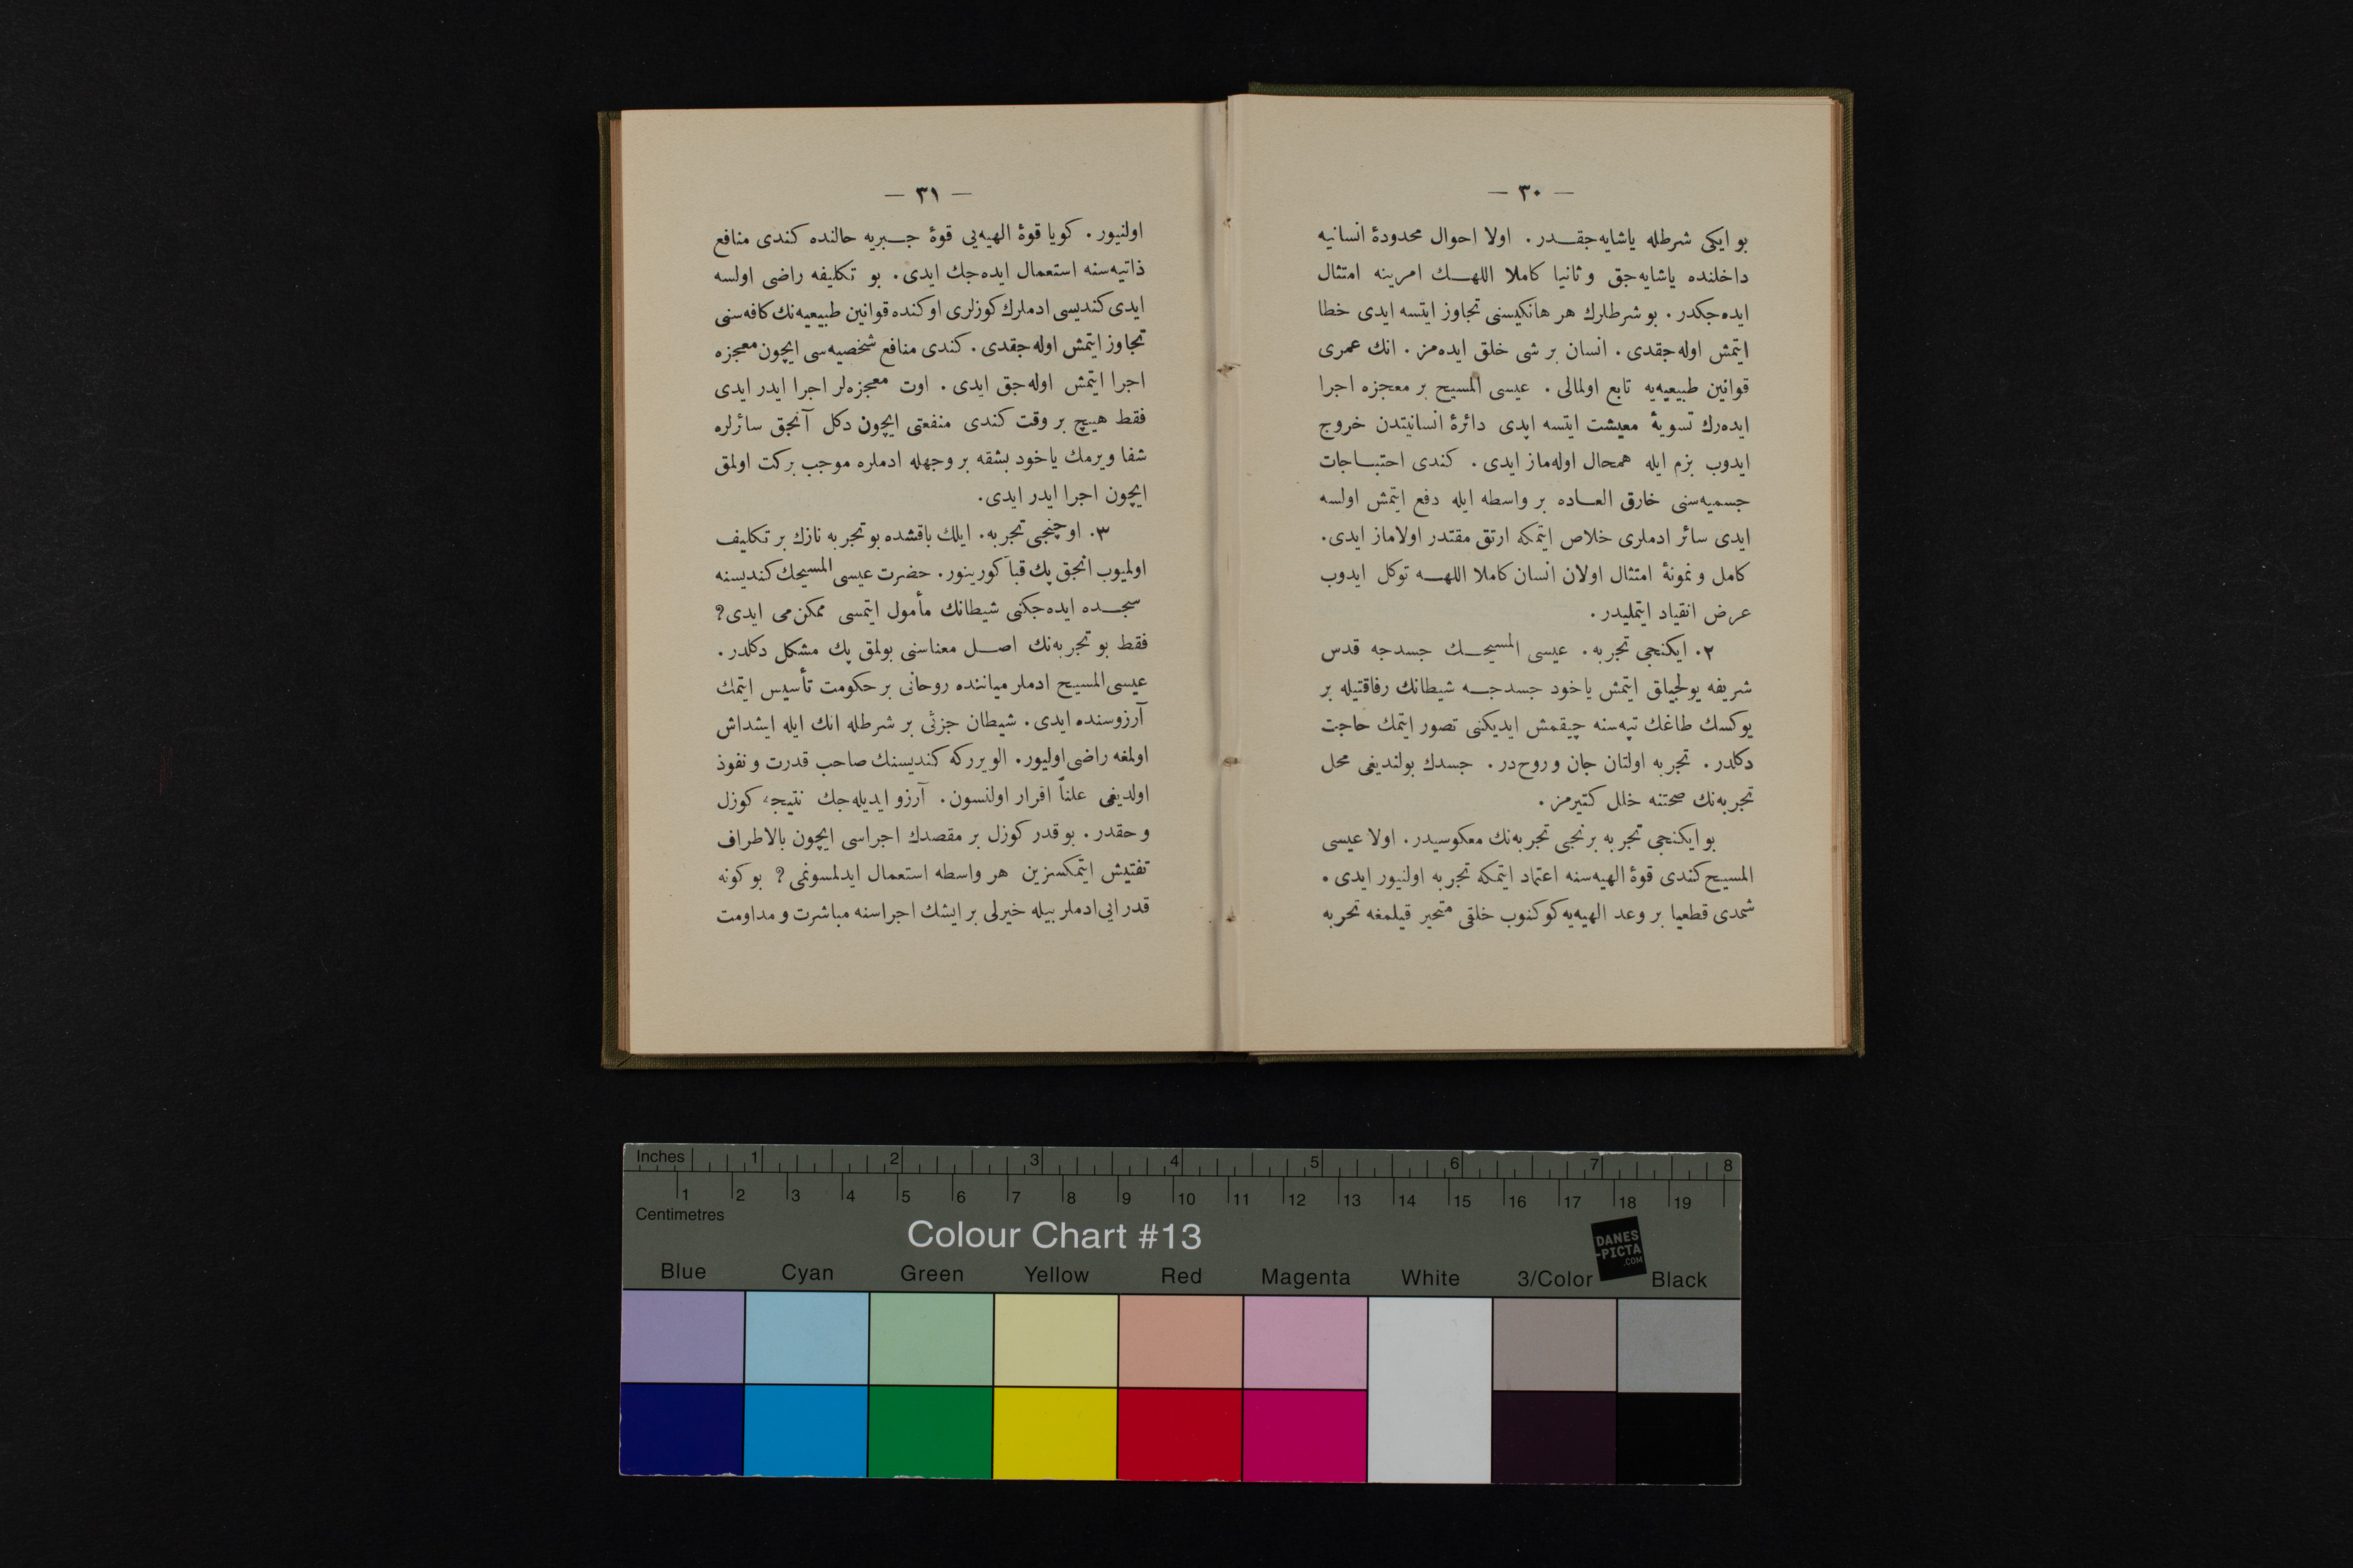 — ٣٠ —
بو ایکی شرطله یاشایه‌جقـدر . اولا احوال محدودۀ انسانیه
داخلنده یاشایه‌جق و ثانیا کاملا اللهـك امرینه امتثال
ایده‌جکدر . بو شرطلرك هر هانکیسنی تجاوز ایتسه ایدی خطا
ایتمش اوله‌جقدی . انسان بر شی خلق ایده‌مز . انك عمری
قوانین طبیعیه‌یه تابع اولمالی . عیسی المسیح بر معجزه اجرا
ایده‌رك تسویۀ معیشت ایتسه ایدی دائرۀ انسانیتدن خروج
ایدوب بزم ایله همحال اوله‌ماز ایدی . کندی احتیـاجات
جسمیه‌سنی خارق العـاده بر واسطه ایله دفع ایتمش اولسه
ایدی سائر ادملری خلاص ایتمکه ارتق مقتدر اولاماز ایدی .
کامل و نمونۀ امتثال اولان انسان کاملا اللهـه توکل ایدوب
عرض انقیاد ایتملیدر .
٢. ایکنجی تجربه . عیسی المسیحـك جسدجه قدس
شریفه یولجیلق ایتمش یاخود جسدجـه شیطانك رفاقتیله بر
یوکسك طاغك تپه‌سنه چیقمش ایدیکنی تصور ایتمك حاجت
دکلدر . تجربه اولنان جان و روح‌در . جسدك بولندیغی محل
تجربه‌نك صحتنه خلل کتیرمز .
بو ایکنجی تجربه برنجی تجربه‌نك معکوسیدر . اولا عیسی
المسیح کندی قوۀ الهیه‌سنه اعتماد ایتمکه تجربه اولنیور ایدی .
شمدی قطعیا بر وعد الهیه‌یه کوکنوب خلقی متحیر قیلمغه تجربه
— ٣١ —
اولنیور . کویا قوۀ الهیه‌یی قوۀ جـبریه حالنده کندی منافع
ذاتیه‌سنه استعمال ایده‌جك ایدی . بو تکلیفه راضی اولسه
ایدی کندیسی ادملرك کوزلری اوکنده قوانین طبیعیه‌نك کافه‌سنی
تجاوز ایتمش اوله‌جقدی . کندی منافع شخصیه‌سی ایچون معجزه
اجرا ایتمش اوله‌جق ایدی . اوت معجزه‌لر اجرا ایدر ایدی
فقط هیچ بر وقت کندی منفعتی ایچون دکل آنجق سائرلره
شفا ویرمك یاخود بشقه بر وجهله ادملره موجب برکت اولمق
ایچون اجرا ایدر ایدی .
٣. اوچنجی تجربه . ایلك باقشده بو تجربه نازك بر تکلیف
اولمیوب انجق پك قبا کورینور . حضرت عیسی المسیحك کندیسنه
سجـده ایده‌جکنی شیطانك مأمول ایتمسی ممکن‌می ایدی ?
فقط بو تجربه‌نك اصـل معناسنی بولمق پك مشکل دکلدر .
عیسی المسیح ادملر میاننده روحانی بر حکومت تأسیس ایتمك
آرزوسنده ایدی . شیطان جزئی بر شرطله انك ایله ایشداش
اولمغه راضی اولیور . الویررکه کندیسنك صاحب قدرت و نفوذ
اولدیغی علناً اقرار اولنسون . آرزو ایدیله‌جك نتیجهٔ کوزل
و حقدر . بو قدر کوزل بر مقصدك اجراسی ایچون بالاطراف
تفتیش ایتمکسزین هر واسطه استعمال ایدلمسونمی ? بو کونه
قدر ایی ادملر بیله خیرلی بر ایشك اجراسنه مباشرت و مداومت
Inches 1 2 3 4 5 6 7 8
1 2 3 4 5 6 7 8 9 10 11 12 13 14 15 16 17 18 19
Centimetres
Colour Chart #13
DANES
-PICTA
.COM
Blue Cyan Green Yellow Red Magenta White 3/Color Black